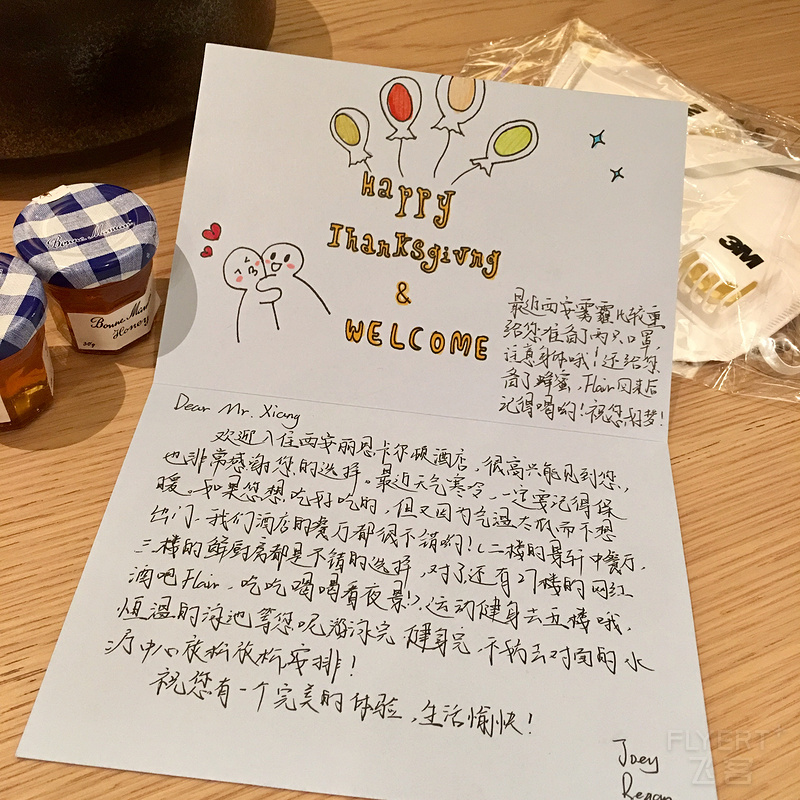 Happy
Thanksgivng
&
WELCOME
最近西安雾霾比较重
给您准备了两只口罩,
注意身体哦!还给您
备了蜂蜜,Flair回来后
记得喝哟!祝您好梦!
Dear Mr. Xiang
欢迎入住西安丽思卡尔顿酒店,很高兴能见到您,
也非常感谢您的选择。最近天气寒冷,一定要记得保
暖。如果您想吃好吃的,但又因为气温太低而不想
出门,我们酒店的餐厅都很不错哟!(二楼的景轩中餐厅,
三楼的鲜厨房都是不错的选择,对了还有27楼的网红
酒吧Flair,吃吃喝喝看夜景!),运动健身去五楼哦,
恒温的泳池等您呢游泳完健身完,不妨去对面的水
疗中心放松放松安排!
祝您有一个完美的体验,生活愉快!
Joey
Bonne Maman
Bonne Mam
Honey
30g
3M
FLYERT
飞客